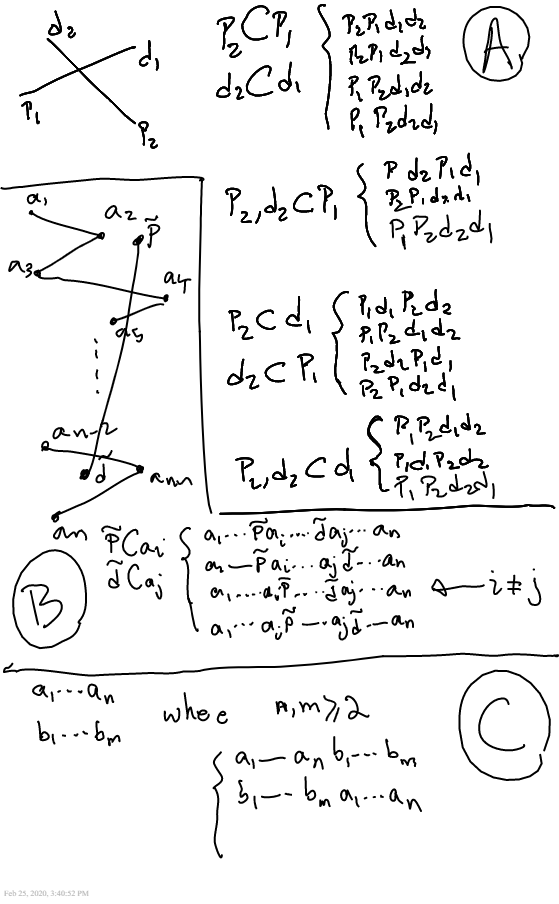 d₂
d₁
P₁
P₂
P₂ C P₁
d₂ C d₁
P₂P₁d₁d₂
P₂P₁d₂d₁
P₁P₂d₁d₂
P₁P₂d₂d₁
A
P₂,d₂ C P₁
P d₂P₁d₁
P₂P₁d₂d₁
P₁P₂d₂d₁
P₂ C d₁
d₂ C P₁
P₁d₁P₂d₂
P₁P₂d₁d₂
P₂d₂P₁d₁
P₂P₁d₂d₁
P₂,d₂ C d
P₁P₂d₁d₂
P₁d₁P₂d₂
P₁P₂d₂d₁
a₁
a₂
p̃
a₃
a₄
a₅
aₙ₋₂
d̃
aₙ
p̃ C aᵢ
d̃ C aⱼ
a₁...p̃aᵢ...d̃aⱼ...aₙ
a₁—p̃aᵢ...aⱼd̃...aₙ
a₁....aᵢp̃...d̃aⱼ...aₙ ← i≠j
a₁...aᵢp̃—..aⱼd̃..—aₙ
B
a₁...aₙ
b₁...bₘ
where n,m≥2
a₁—aₙb₁...bₘ
b₁—..bₘa₁...aₙ
C
Feb 25, 2020, 3:40:52 PM